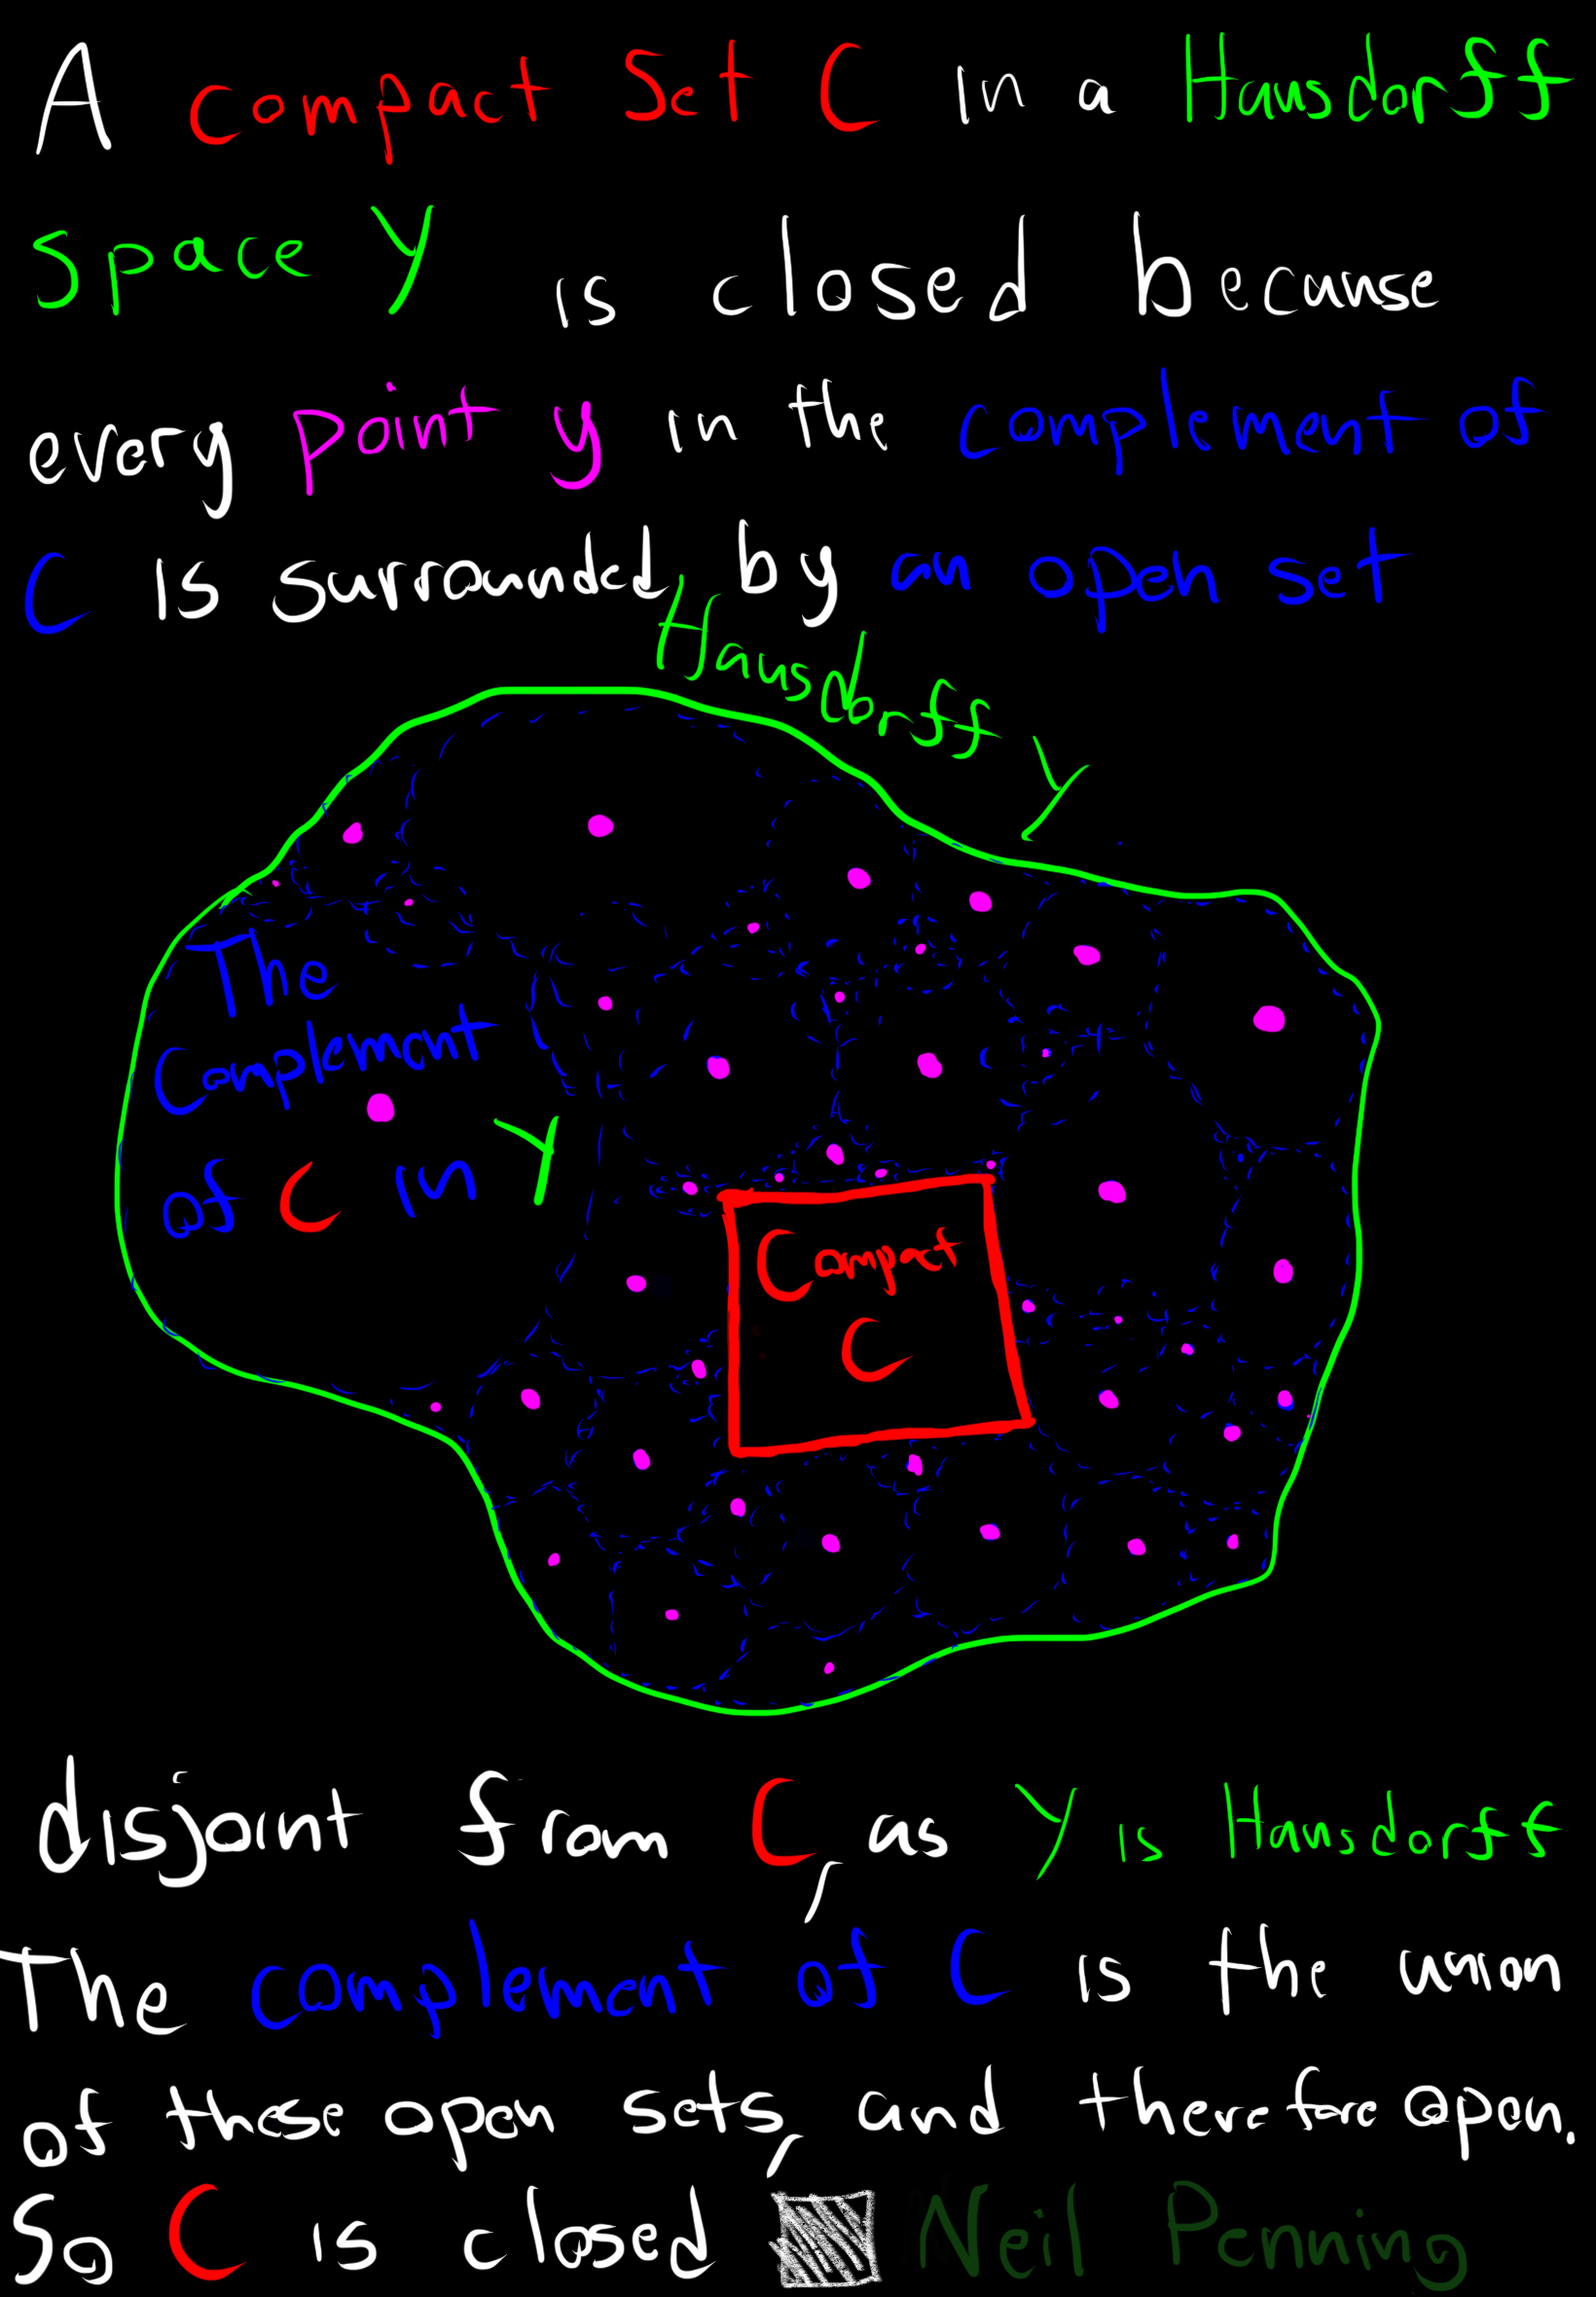 A compact Set C in a Hausdorff
Space Y is closed because
every point y in the complement of
C is surrounded by an open set
Hausdorff Y
The
Complement
of C in Y
Compact
C
disjoint from C, as Y is Hausdorff
The complement of C is the union
of these open sets, and therefore open.
So C is closed Neil Penning